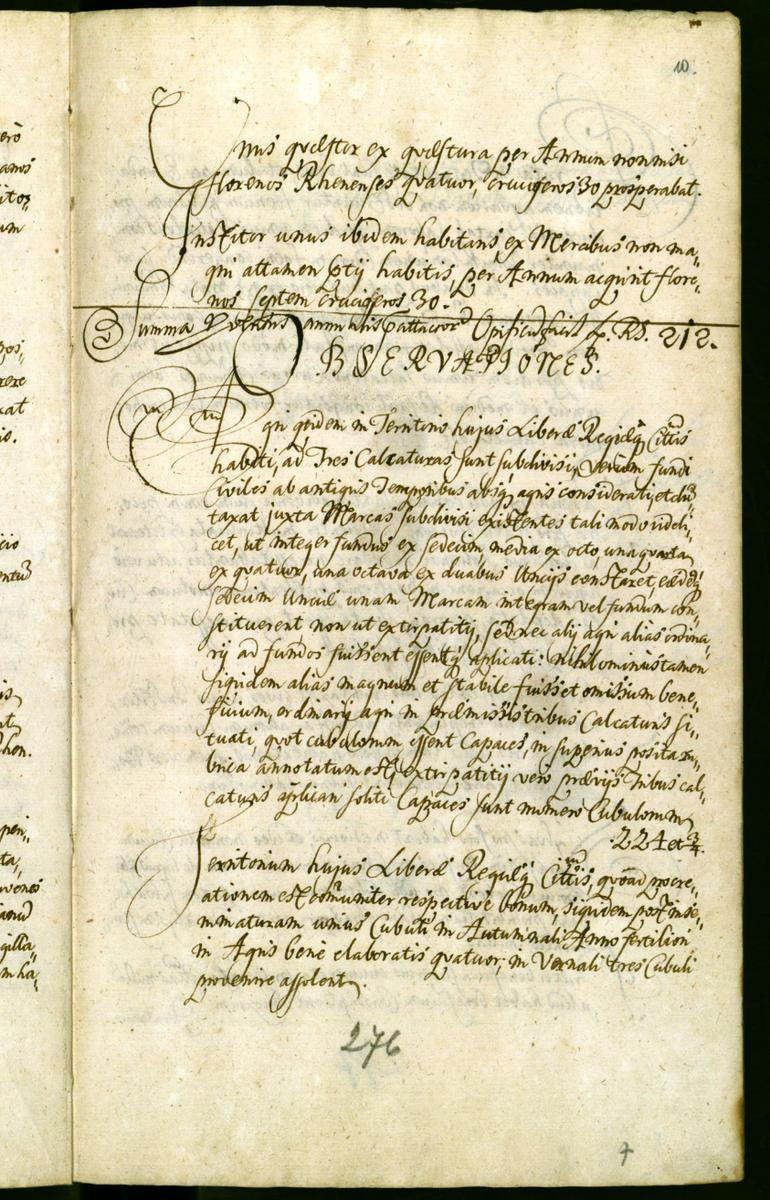 10.
Unus quæstor ex quæstura per Annum non nisi
florenos Rhenenses quatuor, cruciferos 30 prosperabat.
Institor unus ibidem habitans ex Mercibus non ma„
gni attamen ptij habitis, per Annum acquirit flore„
nos septem cruciferos 30.
Summa Proventus annualis Opificu fl. Rh. 212.
OBSERVATIONES.
Agri qdem in Territorio hujus Liberæ Regiæq Cittis
habiti, ad Tres Calcaturas sunt subdivisi, verum fundi
Civiles ab antiquis Temporibus absq agris considerati, et dũ
taxat juxta Marcas subdivisi existentes tali modo videli„
cet, ut integer fundus ex sedecim, media ex octo, una quarta
ex quatuor, una octava ex duabus Uncijs constaret, eædẽq
sedecim Unciæ unam Marcam integram vel fundum con„
stituerent non ut extirpatitij, sed nec alij agri alias ordina„
rij ad fundos fuissent essentq aplicati: nihilominus tamen
siquidem alias magnum et stabile fuisset omissum bene„
ficium, ordinarij agri in præmissis tribus Calcaturis si„
tuati, quot cubulorum essent Capaces, in superius posita ru„
brica annotatum est, extirpatitij vero prævijs Tribus cal„
caturis aplicari soliti Capaces sunt numero Cubulorum
224 et 3/4.
Territorium hujus Liberæ Regiæq Cittis, quoad procre„
ationem est comuniter respective bonum, siquidem post inse„
minaturam unius Cubuli in Autumnali Anno fertiliori
in Agris bene elaboratis quatuor, in Vernali tres Cubuli
provenire assolent.
276